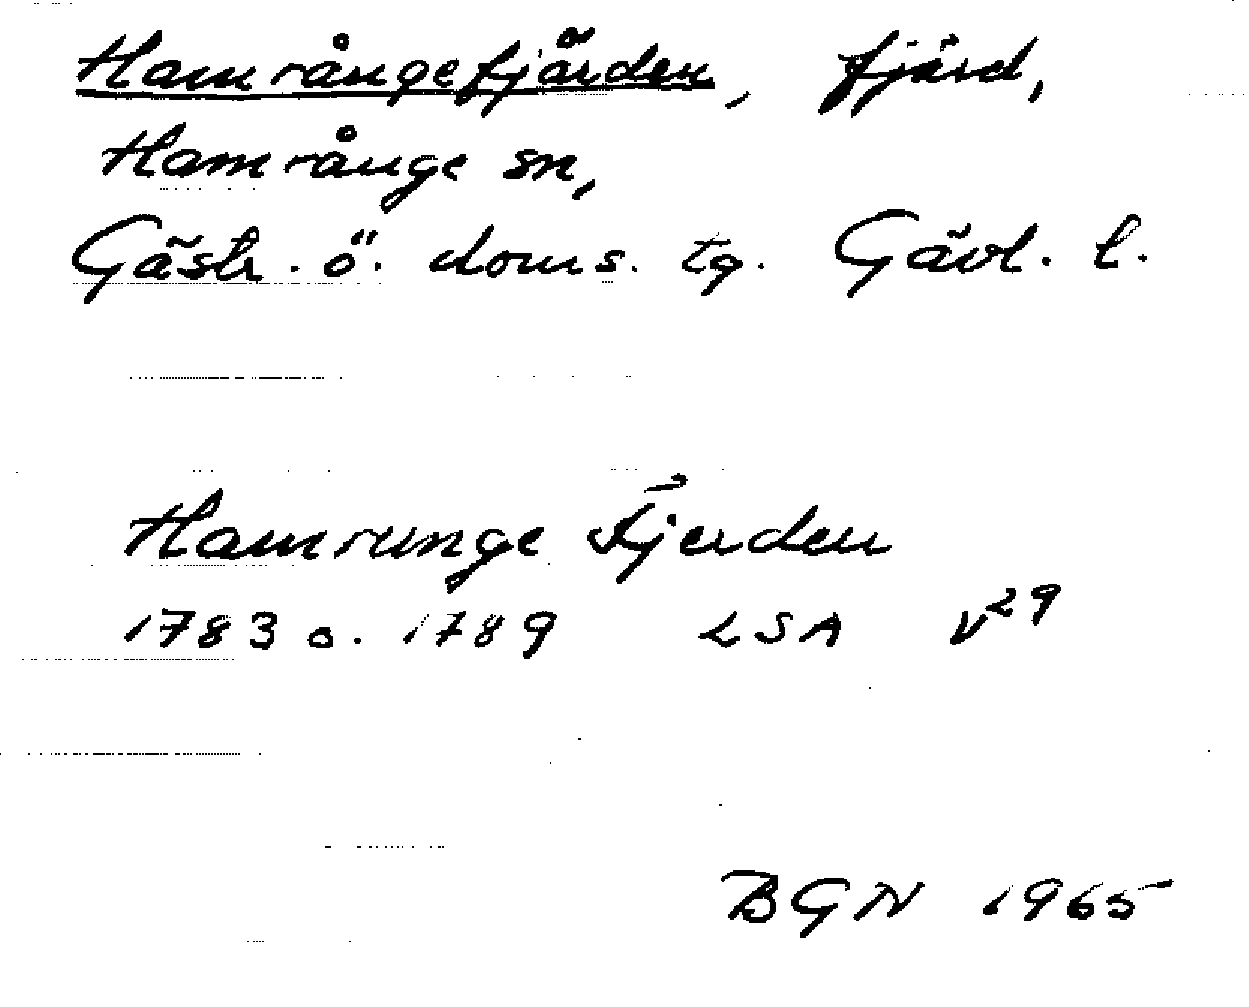 Hamrångefjärden, fjärd,
Hamrånge sn,
Gästr. ö. doms. tg. Gävl. l.
Hamrunge Fjerden
1783 o. 1789 LSA V29
BGN 1965